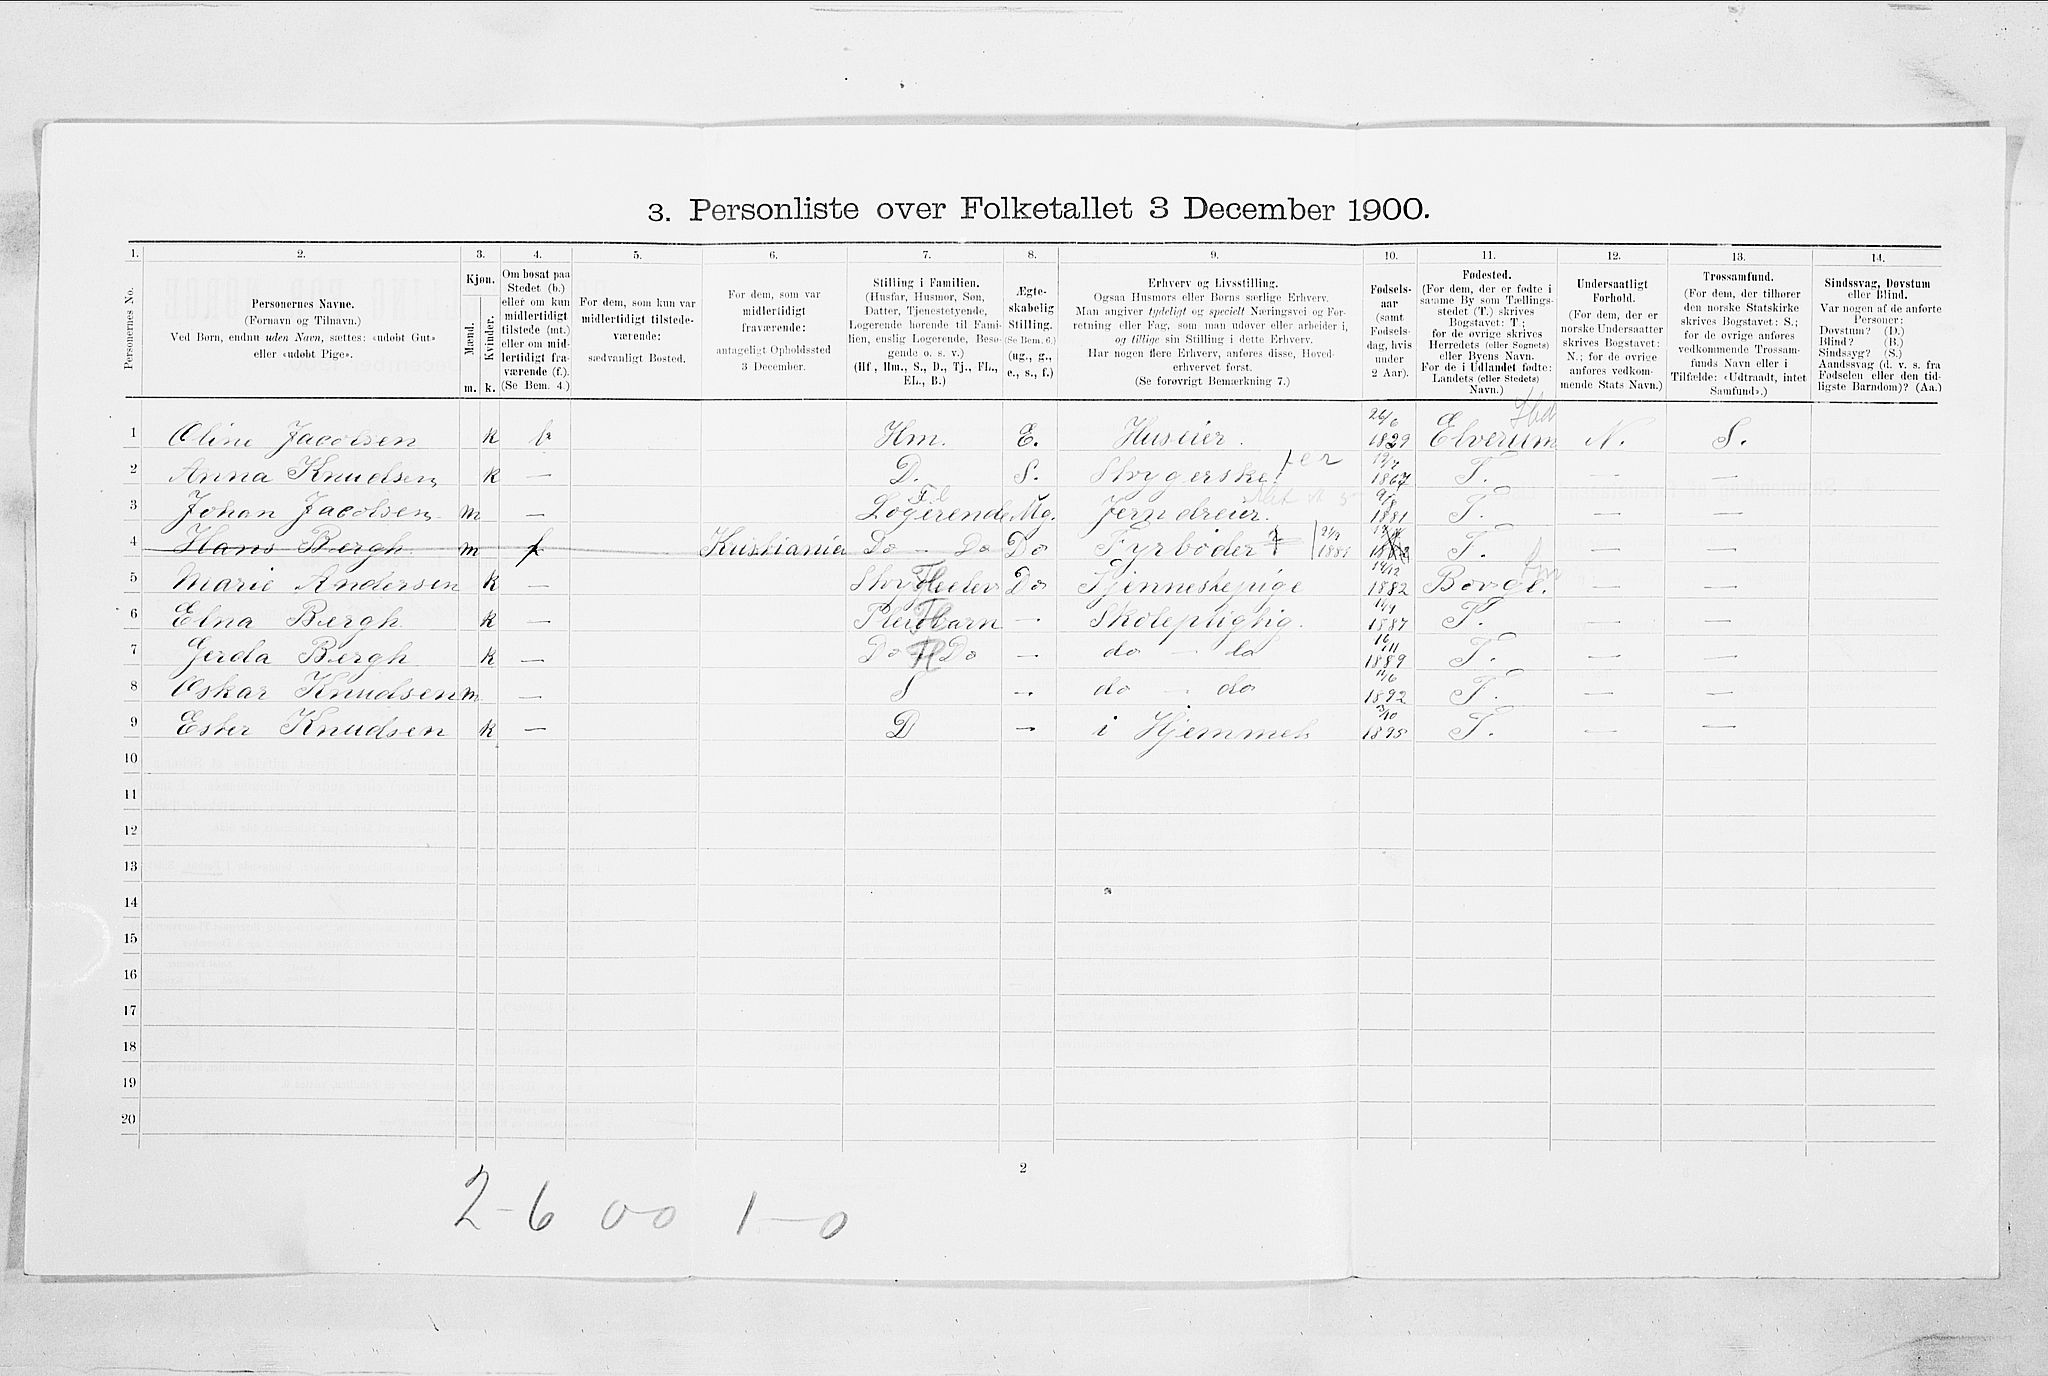 3. Personliste over Folketallet 3 December 1900.
1. 2. 3. 4. 5. 6. 7. 8. 9. 10. 11. 12. 13. 14.
Personernes No.
Personernes Navne.
(Fornavn og Tilnavn.)
Ved Børn, endnu uden Navn, sættes: «udøbt Gut»
eller «udøbt Pige».
Kjøn.
Mænd.
Kvinder.
m. k.
Om bosat paa
Stedet (b.)
eller om kun
midlertidigt
tilstede (mt.)
eller om mid-
lertidigt fra-
værende (f.).
(Se Bem. 4.)
For dem, som kun var
midlertidigt tilstede-
værende:
sædvanligt Bosted.
For dem, som var
midlertidigt
fraværende:
antageligt Opholdssted
3 December.
Stilling i Familien.
(Husfar, Husmor, Søn,
Datter, Tjenestetyende,
Logerende hørende til Fami-
lien, enslig Logerende, Besø-
gende o. s. v.)
(Hf., Hm., S., D., Tj., FL.,
EL., B.)
Ægte-
skabelig
Stilling.
(Se Bem. 6.)
(ug., g.,
e., s., f.)
Erhverv og Livsstilling.
Ogsaa Husmors eller Børns særlige Erhverv.
Man angiver tydeligt og specielt Næringsvei og For-
retning eller Fag, som man udøver eller arbeider i,
og tillige sin Stilling i dette Erhverv.
Har nogen flere Erhverv, anføres disse, Hoved-
erhvervet først.
(Se forøvrigt Bemærkning 7.)
Fødsels-
aar
(samt
Fødsels-
dag, hvis
under
2 Aar).
Fødested.
(For dem, der er fødte i
samme By som Tællings-
stedet (T.) skrives
Bogstavet: T.;
for de øvrige skrives
Herredets (eller Sognets)
eller Byens Navn.
For de i Udlandet fødte:
Landets (eller Stedets)
Navn.)
Undersaatligt
Forhold.
(For dem, der er
norske Undersaatter
skrives Bogstavet:
N.; for de øvrige
anføres vedkom-
mende Stats Navn.)
Trossamfund.
(For dem, der tilhører
den norske Statskirke
skrives Bogstavet: S.;
for de øvrige anføres
vedkommende Trossam-
funds Navn eller i
Tilfælde: «Udtraadt, intet
Samfund».)
Sindssvag, Døvstum
eller Blind.
Var nogen af de anførte
Personer:
Døvstum? (D.)
Blind? (B.)
Sindssyg? (S.)
Aandssvag (d. v. s. fra
Fødselen eller den tid-
ligste Barndom)? (Aa.)
1 Oline Jacobsen k b Hm. E. Huseier. 26/6 1829 Elverum N. S.
2 Anna Knudsen k — D. S. Strygerske 1867 T. — —
3 Johan Jacobsen m — Logerende Ug. Jerndreier. 9/8 1881 T. — —
4 Hans Bergh m f Kristiania Do - Do Do Fyrbøder T. — —
5 Marie Andersen k — Do Tjenestepige 14/12 1882 Borge. — —
6 Elna Bergh k — Pleiebarn — Skolepligtig. 1887 T. — —
7 Gerda Bergh k — Do Fl Do — do — do 16/11 1889 T. — —
8 Oskar Knudsen m — S — do — do 11/6 1892 T. — —
9 Ester Knudsen k — D — i Hjemmet 1895 T. — —
10
11
12
13
14
15
16
17
18
19
20
2
2-6 0-0 1-0